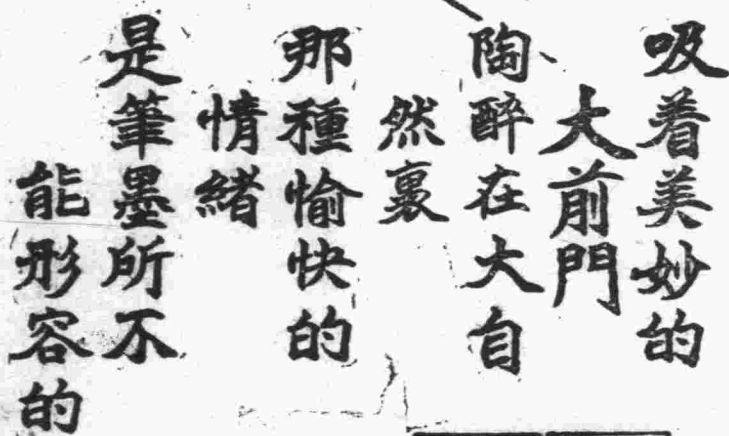 吸着美妙的
大前門
陶醉在大自
然裏
那種愉快的
情緒
是筆墨所不
能形容的